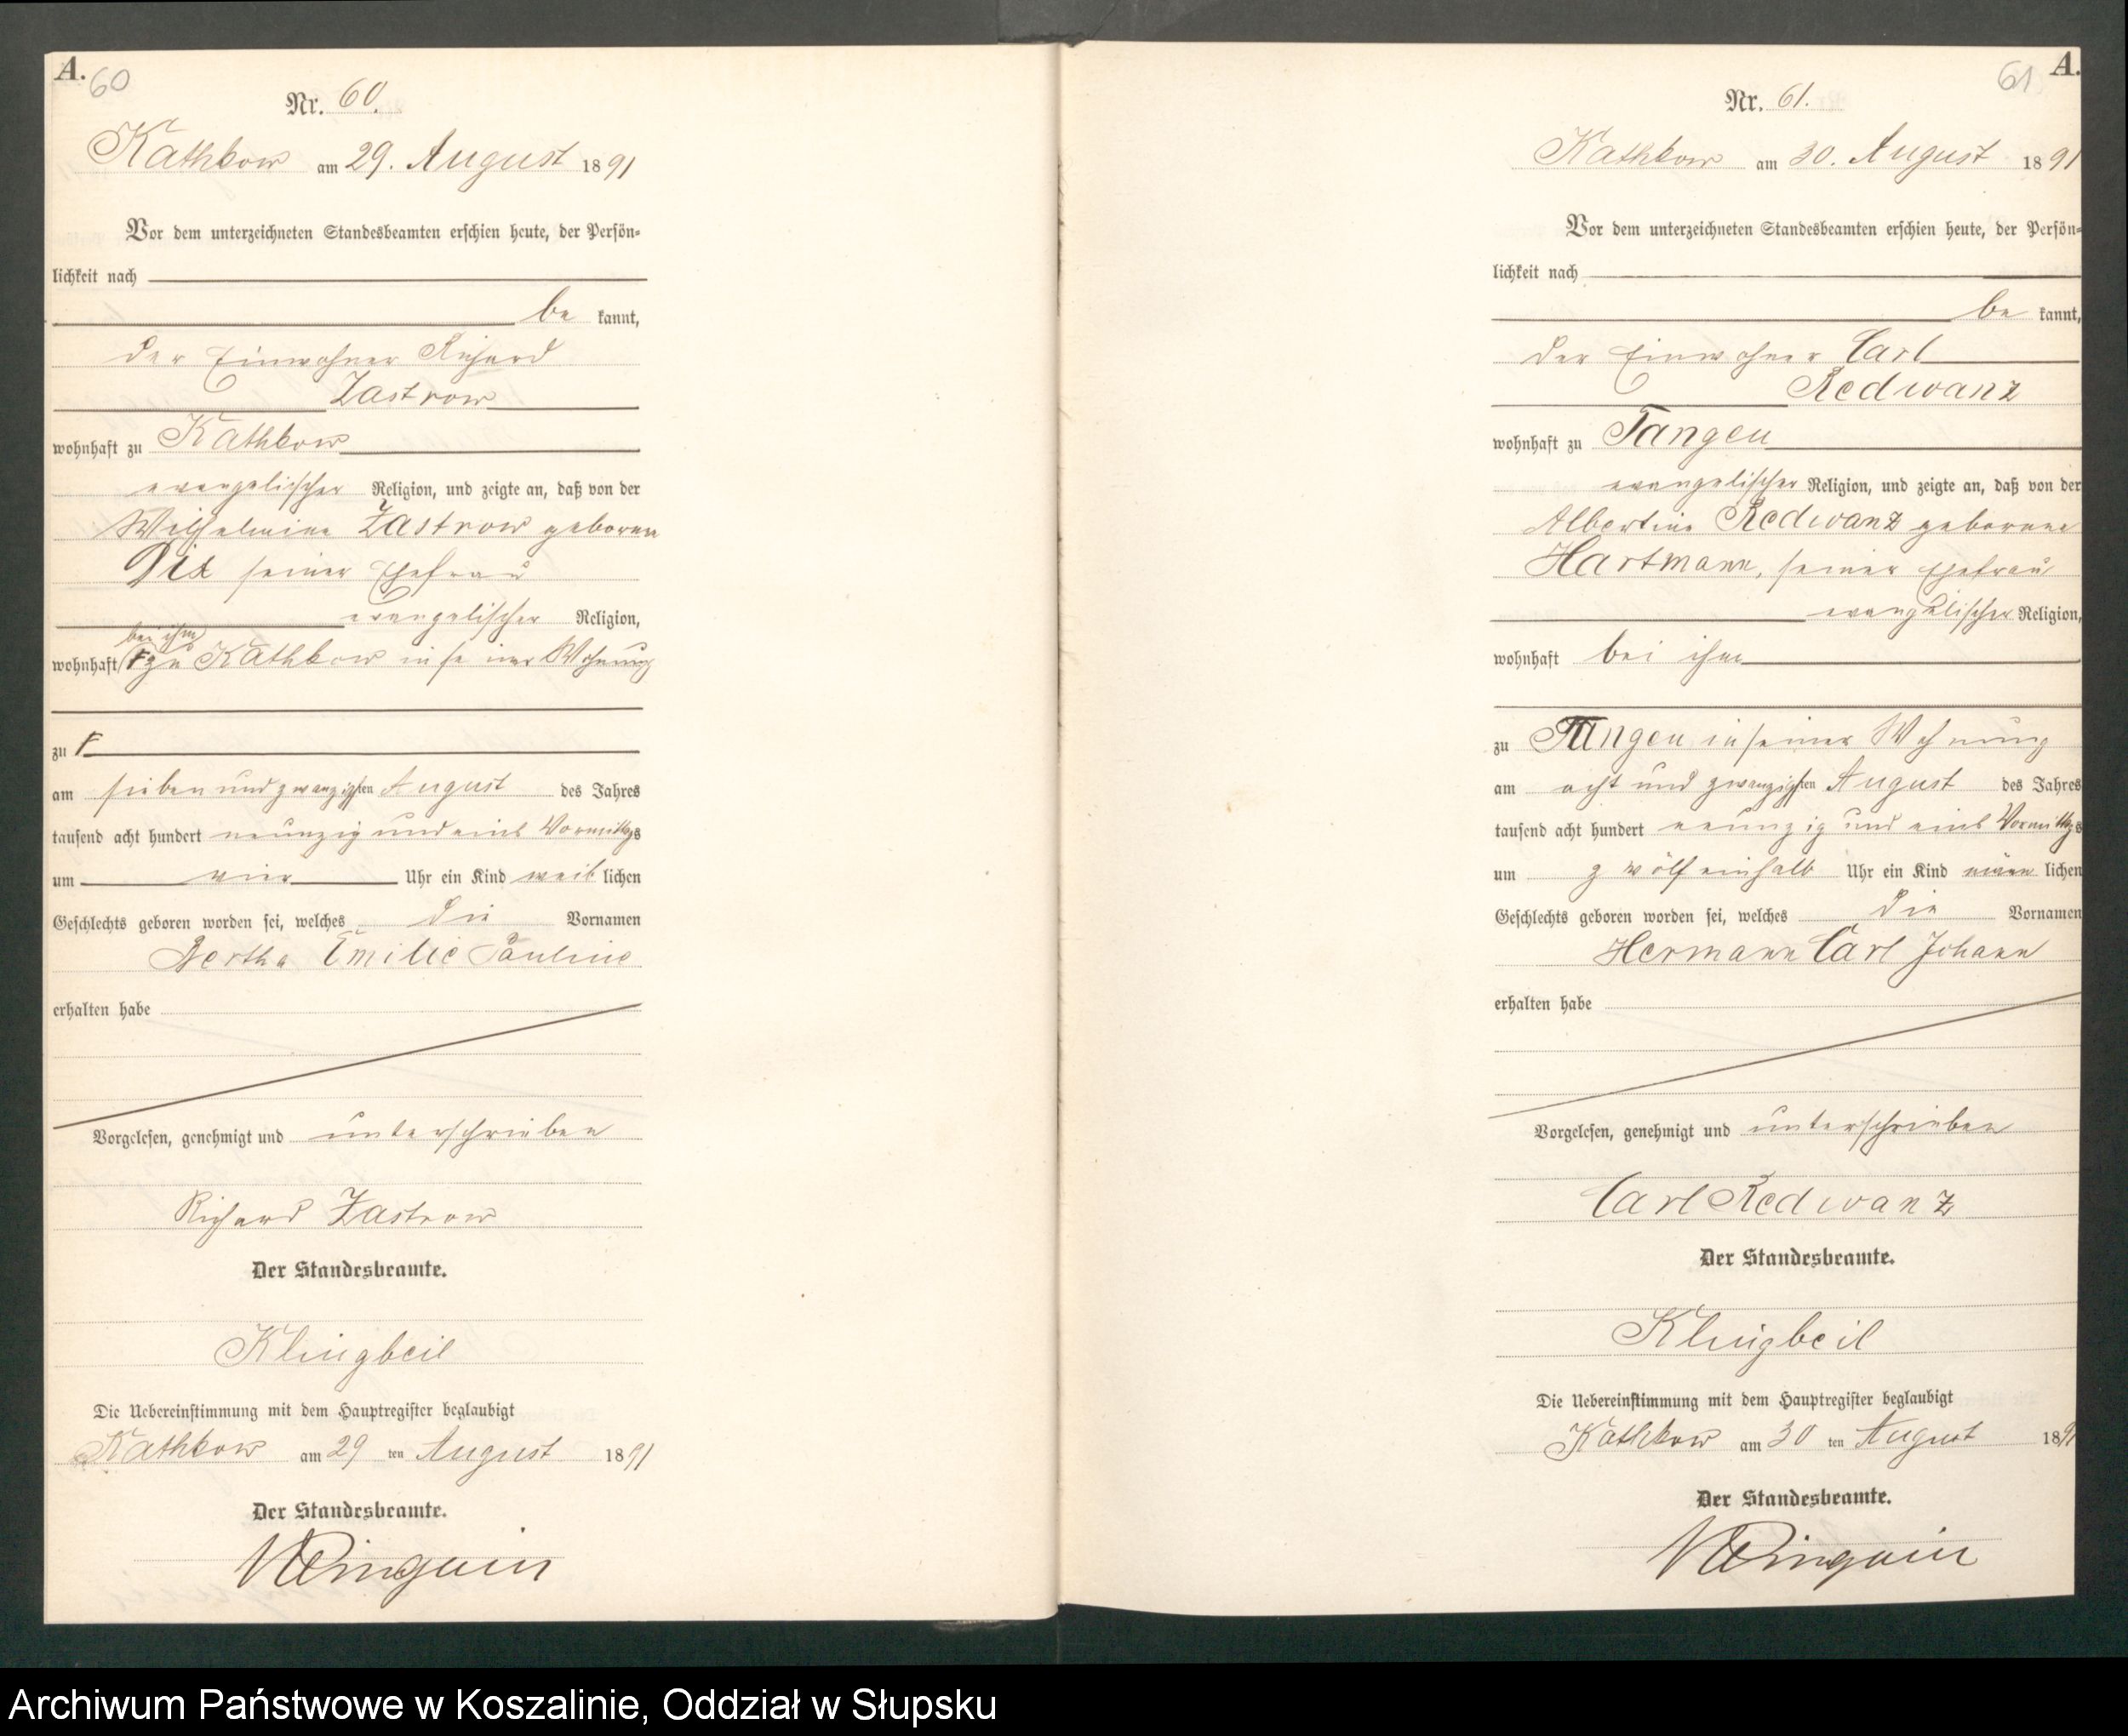 A.
60
Nr. 60.
Kathkow am 29. August 1891
Vor dem unterzeichneten Standesbeamten erschien heute, der Persön-
lichkeit nach
be kannt,
der Einwohner Richard
Zastrow
wohnhaft zu Kathkow
evangelischer Religion, und zeigte an, daß von der
Wilhelmine Zastrow geborene
seiner Ehefrau
evangelischer Religion,
bei ihm
wohnhaft zu Kathkow in seiner Wohnung
zu
am sieben und zwanzigsten August des Jahres
tausend acht hundert neunzig und eins Vormittags
um vier Uhr ein Kind weib lichen
Geschlechts geboren worden sei, welches die Vornamen
Bertha Emilie Pauline
erhalten habe
Vorgelesen, genehmigt und unterschrieben
Richard Zastrow
Der Standesbeamte.
Klingbeil
Die Uebereinstimmung mit dem Hauptregister beglaubigt
Kathkow am 29 ten August 1891
Der Standesbeamte.
A.
61
Nr. 61.
Kathkow am 30. August 1891
Vor dem unterzeichneten Standesbeamten erschien heute, der Persön-
lichkeit nach
be kannt,
der Einwohner Carl
Redwanz
wohnhaft zu Tangen
evangelischer Religion, und zeigte an, daß von der
Albertine Redwanz geborene
Hartmann, seiner Ehefrau
evangelischer Religion,
wohnhaft bei ihm
zu Tangen in seiner Wohnung
am acht und zwanzigsten August des Jahres
tausend acht hundert neunzig und eins Vormittags
um zwölf einhalb Uhr ein Kind männ lichen
Geschlechts geboren worden sei, welches die Vornamen
Hermann Carl Johann
erhalten habe
Vorgelesen, genehmigt und unterschrieben
Carl Redwanz
Der Standesbeamte.
Klingbeil
Die Uebereinstimmung mit dem Hauptregister beglaubigt
Kathkow am 30 ten August 1891
Der Standesbeamte.
Archiwum Państwowe w Koszalinie, Oddział w Słupsku